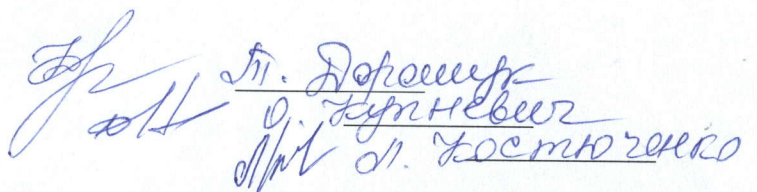 Т. Дорощук
О. Курневич
Л. Костюченко